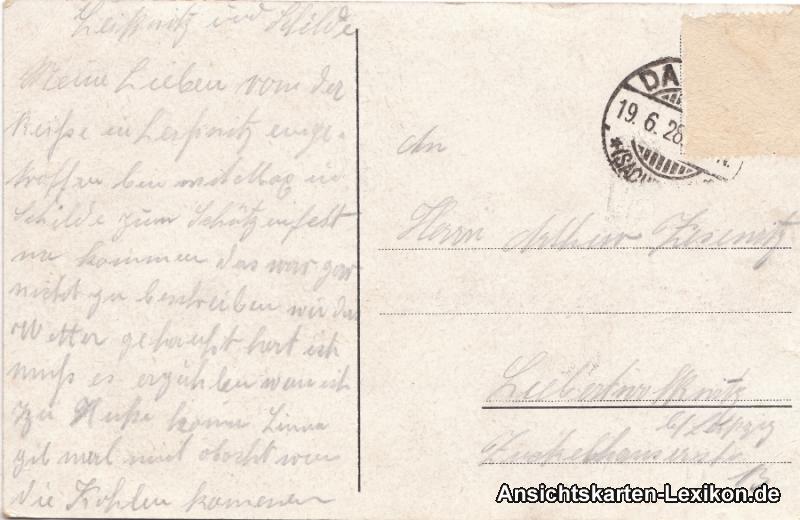 Leißnitz und Schilde
Meine Lieben vom der
Reiße in Leißnitz einge-
troffen ben mittag in
Schilde zum Schützenfest
kommen das war gar
nicht zu beschreiben wie das
Wetter gehaußt hart ich
muß es erzählen wan ich
zu Hause kome
gib mal mit obacht wen
die Kohlen kommen
An
Herrn Arthur
Liebertwolkwitz
b/Leipzig
Zuckelhauserstr
DA
19. 6. 28.
*(SACH N.
Ansichtskarten-Lexikon.de